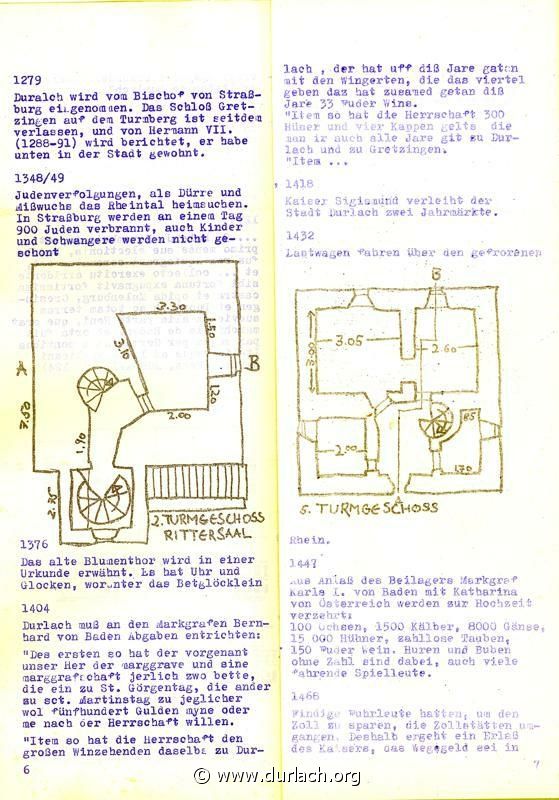 1279
Duralch wird vom Bischof von Straß-
burg eingenommen. Das Schloß Gret-
zingen auf dem Turmberg ist seitdem
verlassen, und von Hermann VII.
(1288-91) wird berichtet, er habe
unten in der Stadt gewohnt.
1348/49
Judenverfolgungen, als Dürre und
Mißwuchs das Rheintal heimsuchen.
In Straßburg werden an einem Tag
900 Juden verbrannt, auch Kinder
und Schwangere werden nicht ge-
schont
3.30
1.50
3.10
B
A
1.20
2.00
1.90
2. TURMGESCHOSS
RITTERSAAL
1376
Das alte Blumenthor wird in einer
Urkunde erwähnt. Es hat Uhr und
Glocken, worunter das Betglöcklein
1404
Durlach muß an den Markgrafen Bern-
hard von Baden Abgaben entrichten:
"Des ersten so hat der vorgenant
unser Her der marggrave und sine
marggrafschaft jerlich zwo bette,
die ein zu St. Görgentag, die ander
zu sct. Martinstag zu jeglicher
wol fünfhundert Gulden myne oder
me nach der Herrschaft willen.
"Item so hat die Herrschaft den
großen Winzehenden daselbs zu Dur-
6
lach , der hat uff diß Jare getan
mit den Wingerten, die das viertel
geben daz hat zusamed getan diß
Jare 33 Fuder Wins.
"Item so hat die Herrschaft 300
Hüner und vier Kappen gelts die
man ir auch alle Jare git zu Dur-
lach und zu Gretzingen.
"Item ...
1418
Kaiser Sigismund verleiht der
Stadt Durlach zwei Jahrmärkte.
1432
Lastwagen fahren über den gefrorenen
B
3.05
3.00
2.60
2.00
85
1.20
A
5. TURMGESCHOSS
Rhein.
1447
Aus Anlaß des Beilagers Markgraf
Karls I. von Baden mit Katharina
von Österreich werden zur Hochzeit
verzehrt:
100 Ochsen, 1500 Kälber, 8000 Gänse,
15 000 Hühner, zahllose Tauben,
150 Fuder Wein. Huren und Buben
ohne Zahl sind dabei, auch viele
fahrende Spielleute.
1468
Findige Fuhrleute hatten, um den
Zoll zu sparen, die Zollstätten um-
gangen. Deshalb ergeht ein Erlaß
des Kaisers, das Weggeld sei in
7
© www.durlach.org